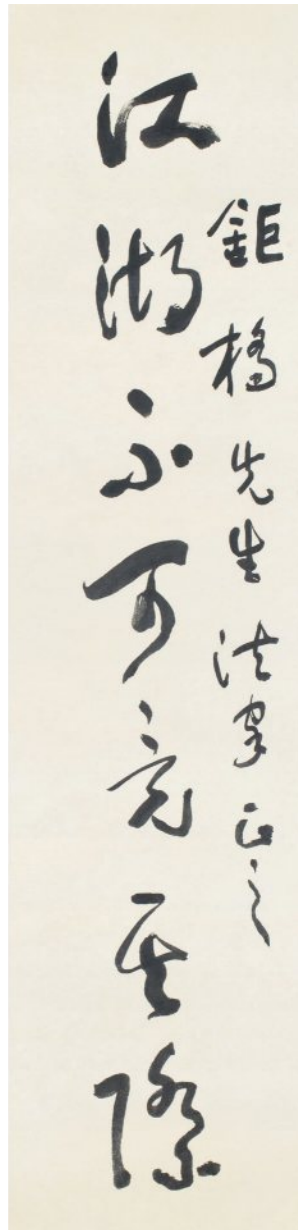 鉅橋先生法家正之
江湖不可竟其際